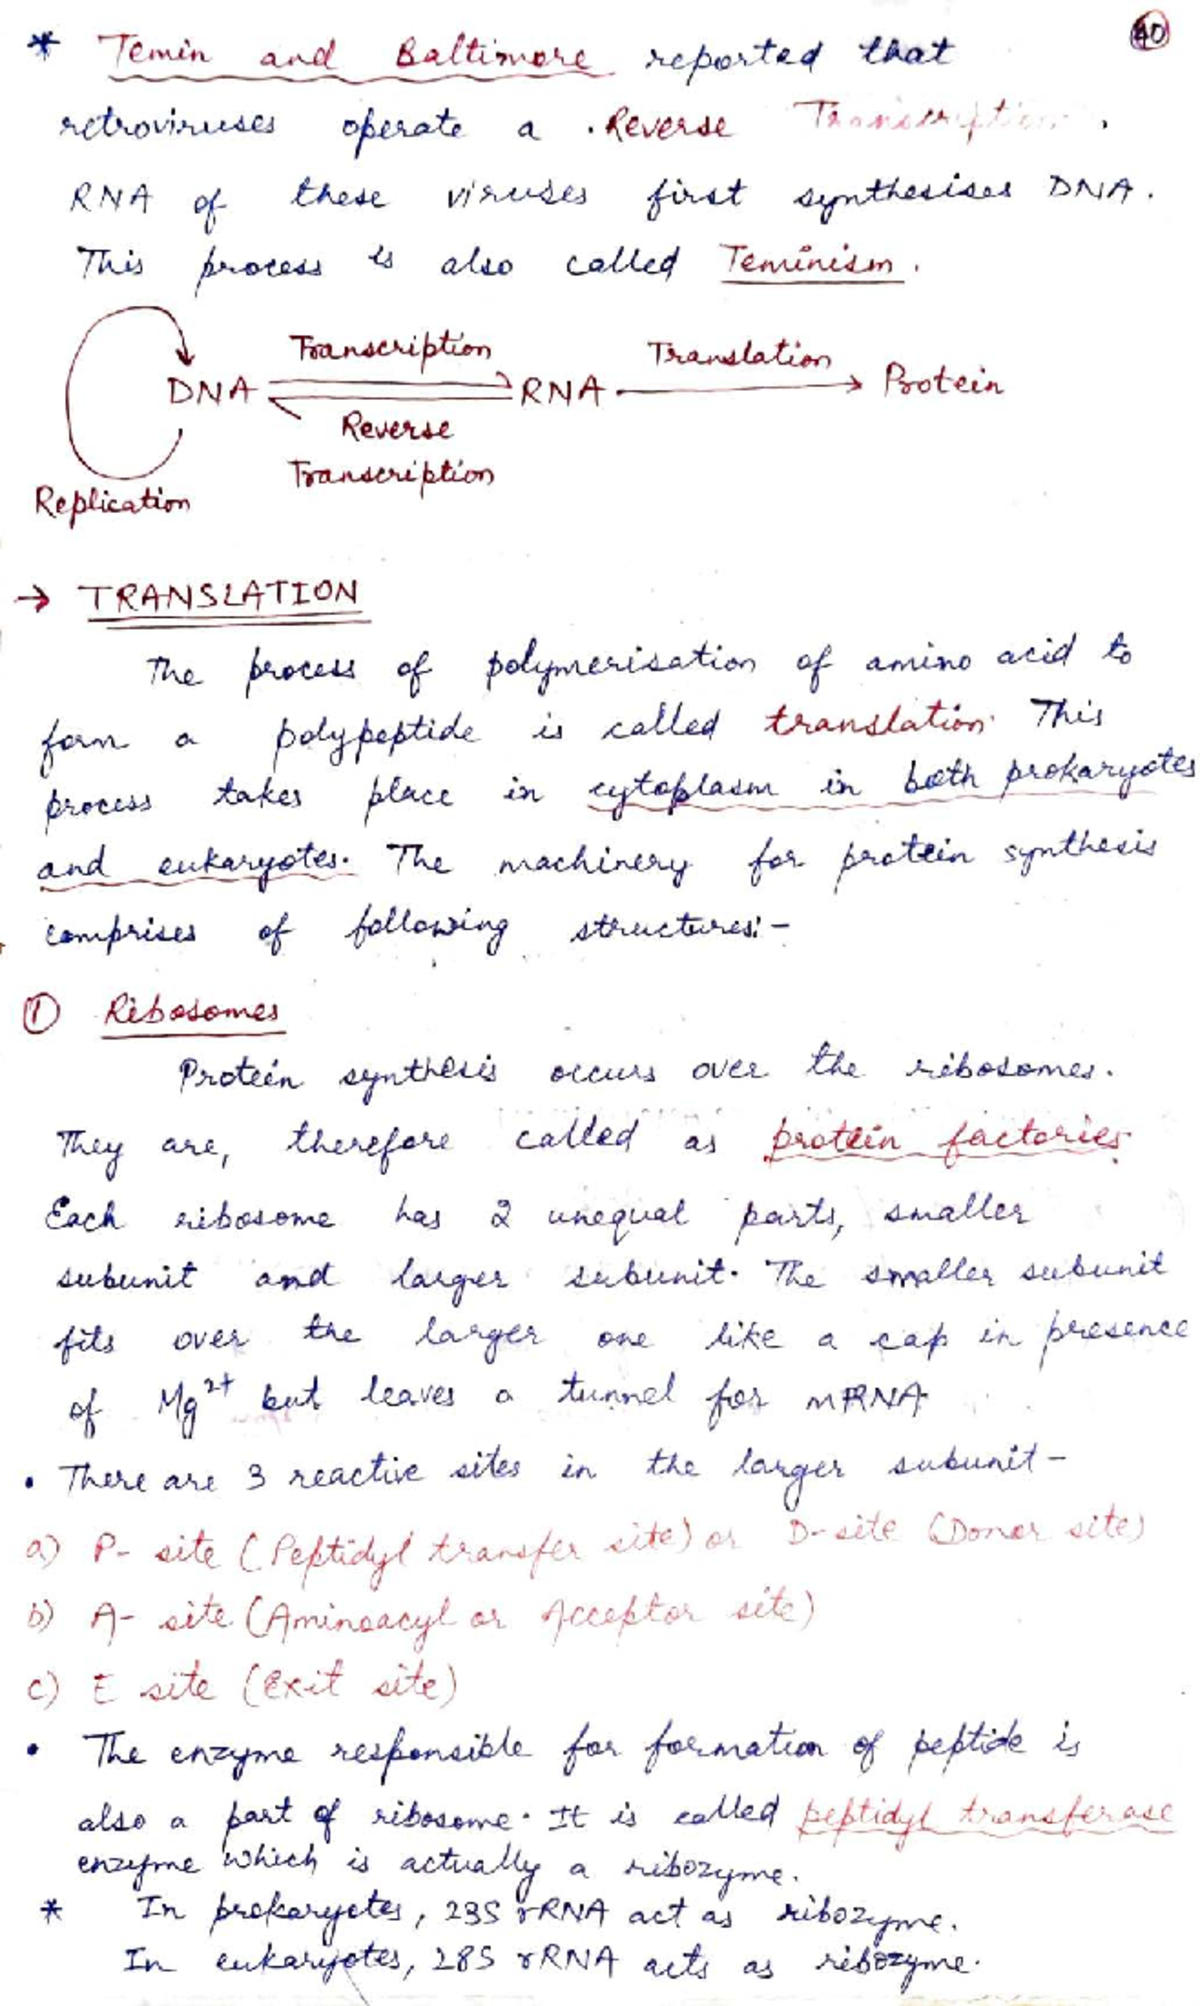 40
* Temin and Baltimore reported that
retroviruses operate a Reverse Transcription.
RNA of these viruses first synthesises DNA.
This process is also called Teminism.
Transcription Translation
DNA RNA Protein
Reverse
Transcription
Replication
→ TRANSLATION
The process of polymerisation of amino acid to
form a polypeptide is called translation. This
process takes place in cytoplasm in both prokaryotes
and eukaryotes. The machinery for protein synthesis
comprises of following structures:-
① Ribosomes
Protein synthesis occurs over the ribosomes.
They are, therefore called as protein factories.
Each ribosome has 2 unequal parts, smaller
subunit and larger subunit. The smaller subunit
fits over the larger one like a cap in presence
of Mg²⁺ but leaves a tunnel for mRNA
• There are 3 reactive sites in the larger subunit-
a) P- site (Peptidyl transfer site) or D-site (Donor site)
b) A- site (Aminoacyl or Acceptor site)
c) E site (Exit site)
• The enzyme responsible for formation of peptide is
also a part of ribosome. It is called peptidyl transferase
enzyme which is actually a ribozyme.
* In prokaryotes, 23S rRNA act as ribozyme.
In eukaryotes, 28S rRNA acts as ribozyme.